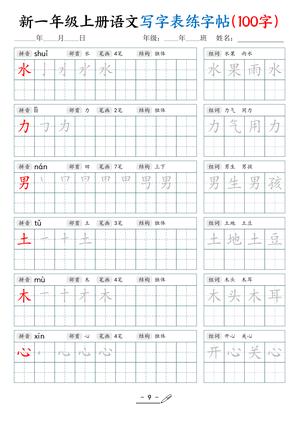 新一年级上册语文写字表练字帖(100字)
年 月 日 年级: 年 班 姓名:
拼音 shuǐ 部首 水 笔画 4笔 结构 独体 组词 水果 雨水
水 水果雨水
拼音 lì 部首 力 笔画 2笔 结构 独体 组词 力气 用力
力 力气用力
拼音 nán 部首 田 笔画 7笔 结构 上下 组词 男生 男孩
男 男生男孩
拼音 tǔ 部首 土 笔画 3笔 结构 独体 组词 土地 土豆
土 土地土豆
拼音 mù 部首 木 笔画 4笔 结构 独体 组词 木头 木耳
木 木头木耳
拼音 xīn 部首 心 笔画 4笔 结构 独体 组词 开心 关心
心 开心关心
- 9 -